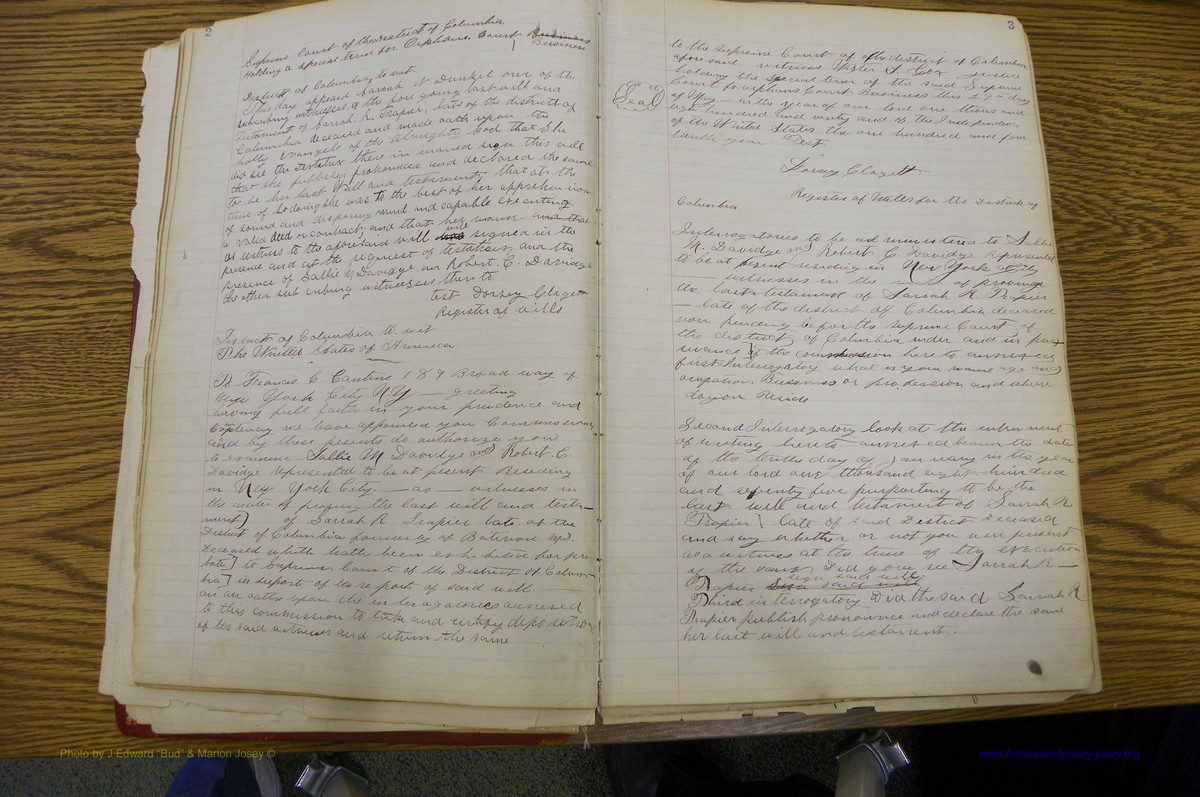 2
Supreme Court of the District of Columbia
Holding a special term for Orphans Court Business
District of Columbia to wit
This day appear Sarah A Dunkel one of the
subscribing witnesses of the foregoing last will and
testament of Sarah R. Trapier, late of the district of
Columbia deceased and made oath upon the
holly evangels of the Almighty God that She
did see the Testatrix there in named sign this will
that she published pronounced and declared the same
to be her last Will and testament, that at the
time of so doing she was to the best of her apprehension
of sound and disposing mind and capable executing
a valid deed or contract, and that her name and that
as witness to the aforesaid will were signed in the
presence and at the request of testatrix and the
presence of Sallie M Davidge and Robert. C. Davidge
the other subscribing witnesses thereto
test Dorsey Clagett
Register of wills
District of Columbia to wit
The United States of America.
To Francis C Cantine 189 Broad way of
New York City N.Y. — greeting
having full faith in your prudence and
Competency we have appointed you Commissioner
and by these presents do authorize you
to examine Sallie M Davidge and Robert. C
Davidge represented to be at present Residing
in New York City — as — witnesses in
the matter of proving the last will and testa-
ment of Sarrah R Trapier late of the
District of Columbia formerly of Baltimore Md.
Deceased which hath been exhibited for pro
bate to Supreme Court of the District of Colum-
bia in support of the said will —
on an oath upon the interrogatories annexed
to this commission to take and certify deposition
of the said witnesses and return the same
3
to the Supreme Court of the district of Columbia
afore said witness Walter S Cox Justice
holding the special term of the said Supreme
Court for orphans Court Business this 29th day
of May — in the year of our lord one thousand
eight hundred and ninety and of the Independence
of the United States the one hundred and four
teenth year Test
Seal
Dorsey Clagett
Register of Wills for the District of
Columbia
Interrogatories to be administered to Sallie
M. Davidge and Robert C Davidge Represented
to be at present residing in New York City
— witnesses in the matter of proving
the last testament of Sarrah R Trapier
— late of the district of Columbia deceased
now pending before the Supreme Court of
the district of Columbia under and in pur
suance of the commission here to annexed
first Interrogatory what is your name age and
occupation Business or profession and where
do you Reside
Second Interrogatory look at the instrument
of writing hereto annexed bearing the date
of the tenth day of January in the year
of our lord one thousand eight hundred
and seventy five purporting to be the
last will and testament of Sarrah R
Trapier late of said District Deceased
and say whether or not you were present
as a witness at the time of the execution
of the same Did you see Sarrah R —
Trapier sign said will
Third interrogatory Did the said Sarrah R
Trapier publish pronounce and declare the same
her last will and testament.
Photo by J Edward "Bud" & Marion Josey ©
www.thehouseofjossey-josey.org